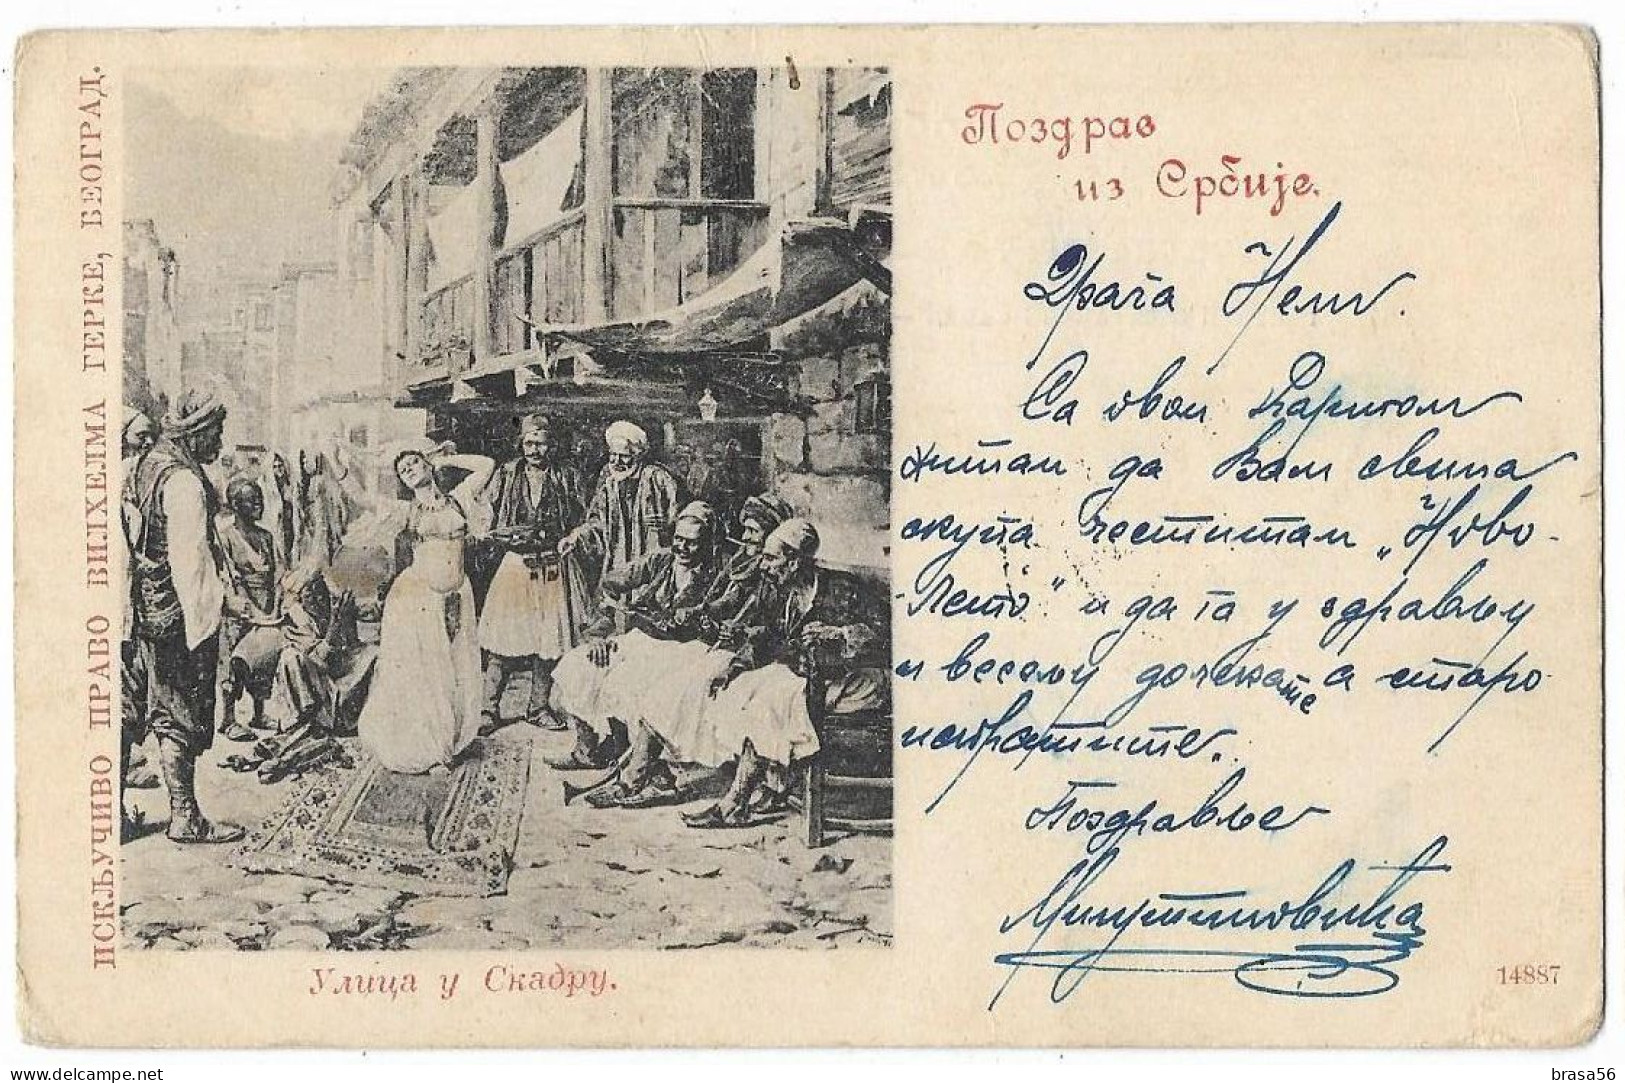 ИСКЉУЧИВО ПРАВО ВИЛХЕЛМА ГЕРКЕ, БЕОГРАД.
Поздрав
из Србије.
Драга Нели.
Са овом Картом
хитам да Вам свима
скупа честитам „Ново-
-Лето“ и да га у здрављу
и весељу дочекате а старо
испратите.
Поздравље
Улица у Скадру.
14887
delcampe.net
brasa56